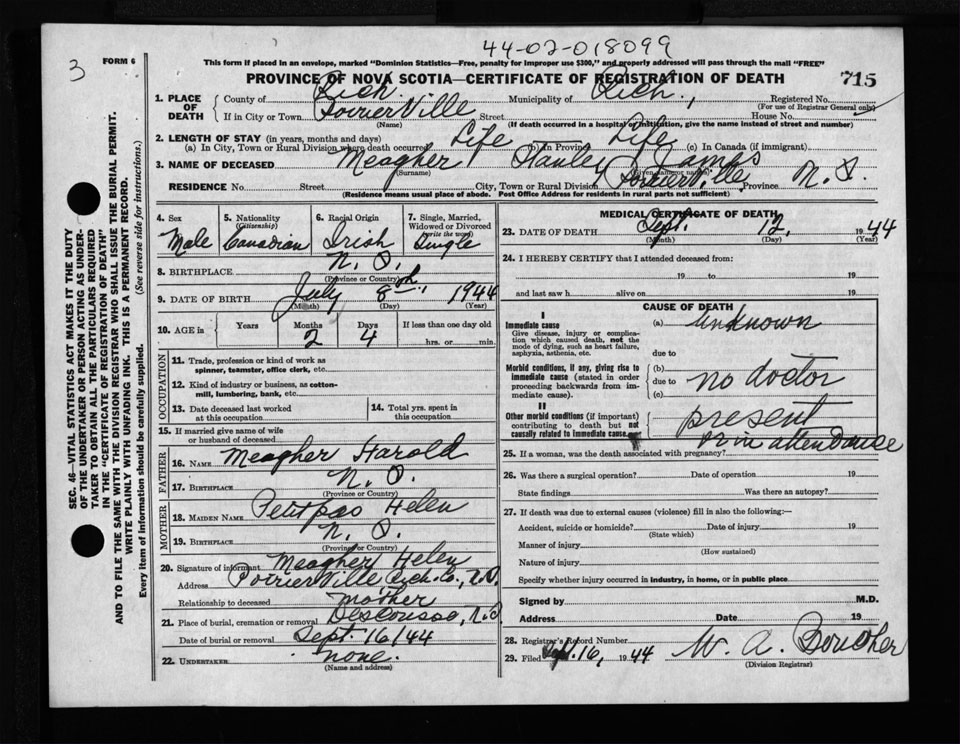 44-02-018099
3
FORM 6
This form if placed in an envelope, marked "Dominion Statistics—Free, penalty for improper use $300," and properly addressed will pass through the mail "FREE"
PROVINCE OF NOVA SCOTIA—CERTIFICATE OF REGISTRATION OF DEATH
715
1. PLACE OF DEATH
County of Rich. Municipality of Rich., Registered No.
(For use of Registrar General only)
If in City or Town PoirierVille Street House No.
(Name) (If death occurred in a hospital or institution, give the name instead of street and number)
2. LENGTH OF STAY (in years, months and days)
(a) In City, Town or Rural Division where death occurred Life (b) In Province Life (c) In Canada (if immigrant)
3. NAME OF DECEASED Meagher Stanley James
(Surname) (Given name or names)
RESIDENCE No. Street City, Town or Rural Division Poirierville, Province N. S.
(Residence means usual place of abode. Post Office Address for residents in rural parts not sufficient)
4. Sex
Male
5. Nationality (Citizenship)
Canadian
6. Racial Origin
Irish
7. Single, Married, Widowed or Divorced (write the word)
Single
8. BIRTHPLACE N. S.
(Province or Country)
9. DATE OF BIRTH July 8th, 1944
(Month) (Day) (Year)
10. AGE in Years Months Days If less than one day old
2 4 hrs. or min.
OCCUPATION
11. Trade, profession or kind of work as
spinner, teamster, office clerk, etc.
12. Kind of industry or business, as cotton-
mill, lumbering, bank, etc.
13. Date deceased last worked
at this occupation
14. Total yrs. spent in
this occupation
15. If married give name of wife
or husband of deceased
FATHER
16. NAME Meagher Harold
17. BIRTHPLACE N. S.
(Province or Country)
MOTHER
18. MAIDEN NAME Petitpas Helen
19. BIRTHPLACE N. S.
(Province or Country)
20. Signature of informant Meagher Helen
Address PoirierVille Rich. Co., N.S.
Relationship to deceased mother
21. Place of burial, cremation or removal Descousse, N.S.
Date of burial or removal Sept. 16/44
22. UNDERTAKER none.
(Name and address)
MEDICAL CERTIFICATE OF DEATH
23. DATE OF DEATH Sept. 12, 1944
(Month) (Day) (Year)
24. I HEREBY CERTIFY that I attended deceased from:
19 to 19
and last saw h alive on 19
CAUSE OF DEATH
I
Immediate cause
Give disease, injury or complica-
tion which caused death, not the
mode of dying, such as heart failure,
asphyxia, asthenia, etc.
(a) unknown
due to
Morbid conditions, if any, giving rise to
immediate cause (stated in order
proceeding backwards from im-
mediate cause).
(b)
due to no doctor
(c)
II
Other morbid conditions (if important)
contributing to death but not
causally related to immediate cause.
present
or in attendance
25. If a woman, was the death associated with pregnancy?
26. Was there a surgical operation? Date of operation 19
State findings Was there an autopsy?
27. If death was due to external causes (violence) fill in also the following:—
Accident, suicide or homicide? Date of injury 19
(State which)
Manner of injury
(How sustained)
Nature of injury
Specify whether injury occurred in industry, in home, or in public place
Signed by M.D.
Address Date 19
28. Registrar's Record Number
29. Filed Sept. 16, 1944 W. A. Boucher
(Division Registrar)
SEC. 46—VITAL STATISTICS ACT MAKES IT THE DUTY
OF THE UNDERTAKER OR PERSON ACTING AS UNDER-
TAKER TO OBTAIN ALL THE PARTICULARS REQUIRED
IN THE "CERTIFICATE OF REGISTRATION OF DEATH"
AND TO FILE THE SAME WITH THE DIVISION REGISTRAR WHO SHALL ISSUE THE BURIAL PERMIT.
WRITE PLAINLY WITH UNFADING INK. THIS IS A PERMANENT RECORD.
Every item of information should be carefully supplied. (See reverse side for instructions.)